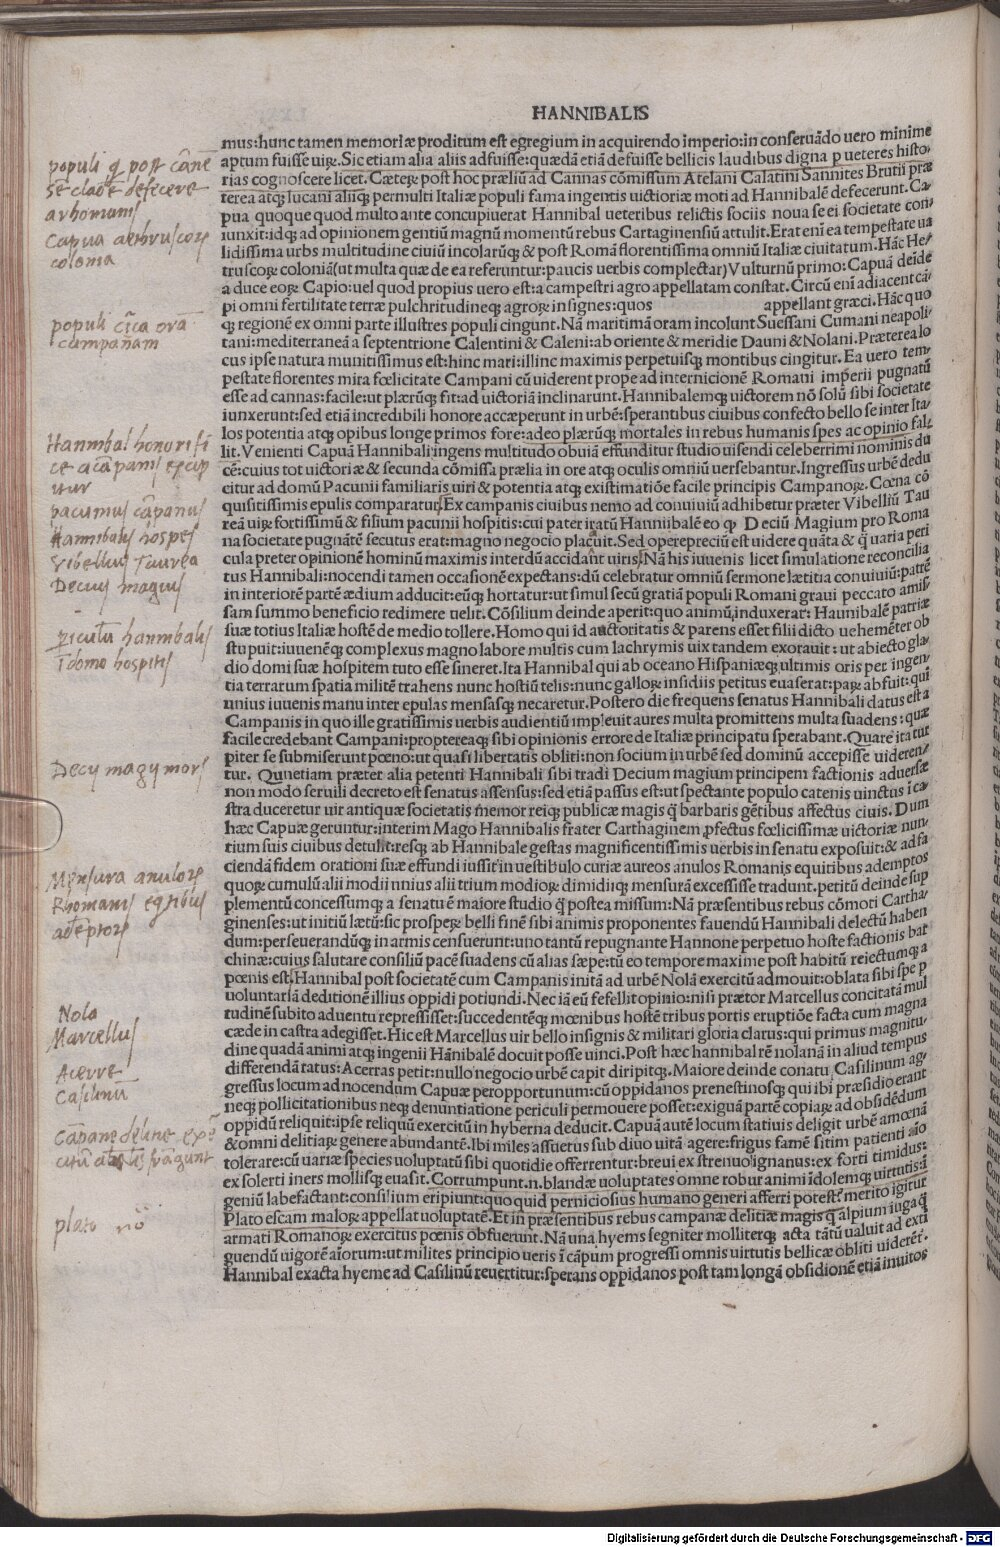 HANNIBALIS
mus:hunc tamen memoriæ proditum est egregium in acquirendo imperio:in conseruãdo uero minime
aptum fuisse uiꝝ. Sic etiam alia aliis adfuisse:quædã etiã defuisse bellicis laudibus digna p ueteres histo/
rias cognoscere licet. Cæteꝝ post hoc præliũ ad Cannas cõmissum Atelani Calatini Sannites Brutii præ
terea atqꝫ lucani aliiqꝫ permulti Italiæ populi fama ingentis uictoriæ moti ad Hannibalẽ defecerunt. Ca/
pua quoque quod multo ante concupiuerat Hannibal ueteribus relictis sociis noua se ei societate con/
iunxit:idqꝫ ad opinionem gentiũ magnũ momentũ rebus Cartaginensiũ attulit. Erat eni ea tempestate ua
lidissima urbs multitudine ciuiũ incolarũqꝫ & post Romã florentissima omniũ Italiæ ciuitatum. Hãc He/
truscoꝝ coloniã(ut multa quæ de ea referuntur:paucis uerbis complectar)Vulturnũ primo:Capuã deide
a duce eoꝝ Capio:uel quod propius uero est:a campestri agro appellatam constat. Circũ eni adiacent cã/
pi omni fertilitate terræ pulchritudineqꝫ agroꝝ insignes:quos appellant græci. Hãc quo
qꝫ regionẽ ex omni parte illustres populi cingunt. Nã maritimã oram incolunt Suessani Cumani neapoli/
tani:mediterraneã a septentrione Calentini & Caleni:ab oriente & meridie Dauni & Nolani. Præterea lo
cus ipse natura munitissimus est:hinc mari:illinc maximis perpetuisqꝫ montibus cingitur. Ea uero tem/
pestate florentes mira fœlicitate Campani cũ uiderent prope ad internicionẽ Romani imperii pugnatũ
esse ad cannas:facile:ut plærũqꝫ fit:ad uictoriã inclinarunt. Hannibalemqꝫ uictorem nõ solũ sibi societate
iunxerunt:sed etiã incredibili honore accæperunt in urbẽ:sperantibus ciuibus confecto bello se inter Ita/
los potentia atqꝫ opibus longe primos fore:adeo plærũqꝫ mortales in rebus humanis spes ac opinio fal/
lit. Venienti Capuã Hannibali ingens multitudo obuiã effunditur studio uisendi celeberrimi nominis du
cẽ:cuius tot uictoriæ & secunda cõmissa prælia in ore atqꝫ oculis omniũ uersebantur. Ingressus urbẽ dedu
citur ad domũ Pacunii familiaris uiri & potentia atqꝫ existimatiõe facile principis Campanoꝝ. Cœna cõ
quisitissimis epulis comparatur. Ex campanis ciuibus nemo ad conuiuiũ adhibetur præter Vibelliũ Tau
reã uiꝝ fortissimũ & filium pacunii hospitis:cui pater iratũ Hanniibalẽ eo qꝫ Deciũ Magium pro Roma
na societate pugnãtẽ secutus erat:magno negocio placuit. Sed operepreciũ est uidere quãta & q̃ uaria peri
cula preter opinionẽ hominũ maximis interdũ accidãt uiris. Nã his iuuenis licet simulatione reconcilia
tus Hannibali:nocendi tamen occasionẽ expectans:dũ celebratur omniũ sermone lætitia conuiuiũ:patrẽ
in interiorẽ partẽ ædium adducit:eũqꝫ hortatur:ut simul secũ gratiã populi Romani graui peccato amis/
sam summo beneficio redimere uelit. Cõsilium deinde aperit:quo animũ induxerat: Haunibalẽ patriæ
suæ totius Italiæ hostẽ de medio tollere. Homo qui id auctoritatis & parens esset filii dicto uehemẽter ob
stupuit:iuuenẽqꝫ complexus magno labore multis cum lachrymis uix tandem exorauit: ut abiecto gla/
dio domi suæ hospitem tuto esse sineret. Ita Hannibal qui ab oceano Hispaniæqꝫ ultimis oris per ingen/
tia terrarum spatia militẽ trahens nunc hostiũ telis:nunc galloꝝ insidiis petitus euaserat:paꝝ abfuit:qui
unius iuuenis manu inter epulas mensasqꝫ necaretur. Postero die frequens senatus Hannibali datus est a
Campanis in quo ille gratissimis uerbis audientiũ impleuit aures multa promittens multa suadens: quæ
facile credebant Campani:proptereaqꝫ sibi opinionis errore de Italiæ principatu sperabant. Quare ita tur
piter se submiserunt pœno:ut quasi libertatis obliti:non socium in urbẽ sed dominũ accepisse uideren/
tur. Qunetiam præter alia petenti Hannibali sibi tradi Decium magium principem factionis aduersæ
non modo seruili decreto est senatus assensus:sed etiã passus est:ut spectante populo catenis uinctus i ca
stra duceretur uir antiquæ societatis memor reiqꝫ publicæ magis q̃ barbaris gẽtibus affectus ciuis. Dum
hæc Capuæ geruntur:interim Mago Hannibalis frater Carthaginem ꝓfectus fœlicissimæ uictoriæ nun/
tium suis ciuibus detulit:resqꝫ ab Hannibale gestas magnificentissimis uerbis in senatu exposuit:& ad fa
ciendã fidem orationi suæ effundi iussit in uestibulo curiæ aureos anulos Romanis equitibus ademptos
quoꝝ cumulũ alii modii nnius alii trium modioꝝ dimidiiqꝫ mensurã excessisse tradunt. petitũ deinde sup
plementũ concessumqꝫ a senatu ẽ maiore studio q̃ postea missum: Nã præsentibus rebus cõmoti Cartha/
ginenses:ut initiũ lætũ:sic prosperẹ belli finẽ sibi animis proponentes fauendũ Hannibali delectũ haben
dum:perseuerandũqꝫ in armis censuerunt:uno tantũ repugnante Hannone perpetuo hoste factionis bar
chinæ:cuius salutare consiliũ pacẽ suadens cũ alias sæpe:tũ eo tempore maxime post habitũ reiectumqꝫ a
pœnis est. Hannibal post societatẽ cum Campanis initã ad urbẽ Nolã exercitũ admouit:oblata sibi spe p
uoluntariã deditionẽ illius oppidi potiundi. Nec iã eũ fefellit opinio:nisi prætor Marcellus concitatã mul
tudinẽ subito aduentu repressisset:succedentẽqꝫ mœnibus hostẽ tribus portis eruptiõe facta cum magna
cæde in castra adegisset. Hic est Marcellus uir bello insignis & militari gloria clarus:qui primus magnitu/
dine quadã animi atqꝫ ingenii Hãnibalẽ docuit posse uinci. Post hæc hannibal rẽ nolanã in aliud tempus
differendã ratus:Acerras petit:nullo negocio urbẽ capit diripitqꝫ. Maiore deinde conatu Casilinum ag/
gressus locum ad nocendum Capuæ peropportunum:cũ oppidanos prenestinosqꝫ qui ibi præsidio erant
neqꝫ pollicitationibus neqꝫ denuntiatione periculi permouere posset:exiguã partẽ copiaꝝ ad obsidẽdum
oppidũ reliquit:ipse reliquũ exercitũ in hyberna deducit. Capuã autẽ locum statiuis deligit urbẽ amœnã
& omni delitiaꝝ genere abundantẽ. Ibi miles assuetus sub diuo uitã agere:frigus famẽ sitim patienti aĩo
tolerare:cũ uariæ species uoluptatũ sibi quotidie offerrentur:breui ex strenuo ignanus:ex forti timidus:
ex solerti iners mollisqꝫ euasit. Corrumpunt.n.blandæ uoluptates omne robur animi idolemqꝫ uirtutis:ĩ
geniũ labefactant:consilium eripiunt:quo quid perniciosius humano generi afferri potest? merito igitur
Plato escam maloꝝ appellat uoluptatẽ. Et in præsentibus rebus campanæ delitiæ magis q̃ alpium iuga q̃
armati Romanoꝝ exercitus pœnis obfuerunt. Nã una hyems segniter molliterqꝫ acta tãtũ ualuit ad exti
guendũ uigorẽ aĩorum:ut milites principio ueris ĩ cãpum progressi omnis virtutis bellicæ obliti uiderẽt.
Hannibal exacta hyeme ad Casilinũ reuertitur:sperans oppidanos post tam longã obsidionẽ etiã inuitos
populi q post cãnẽ
sẽ cladẽ defecere
a rhomanis
Capua aethruscoꝝ
colonia
populi circa orã
campanam
Hannibal honorifi
ce a cãpanis excip
itur
pacunius cãpanus
Hannibalis hospes
Vibellius Taurea
Decius magius
periculũ hannibalis
ĩ domo hospitis
Decij magij mors
Mensura anuloꝝ
Rhomanis eqtibus
adẽptoꝝ
Nola
Marcellus
Acerre
Casilinũ
Cãpane delitie exer
citũ frãgunt
plato
Digitalisierung gefördert durch die Deutsche Forschungsgemeinschaft - DFG